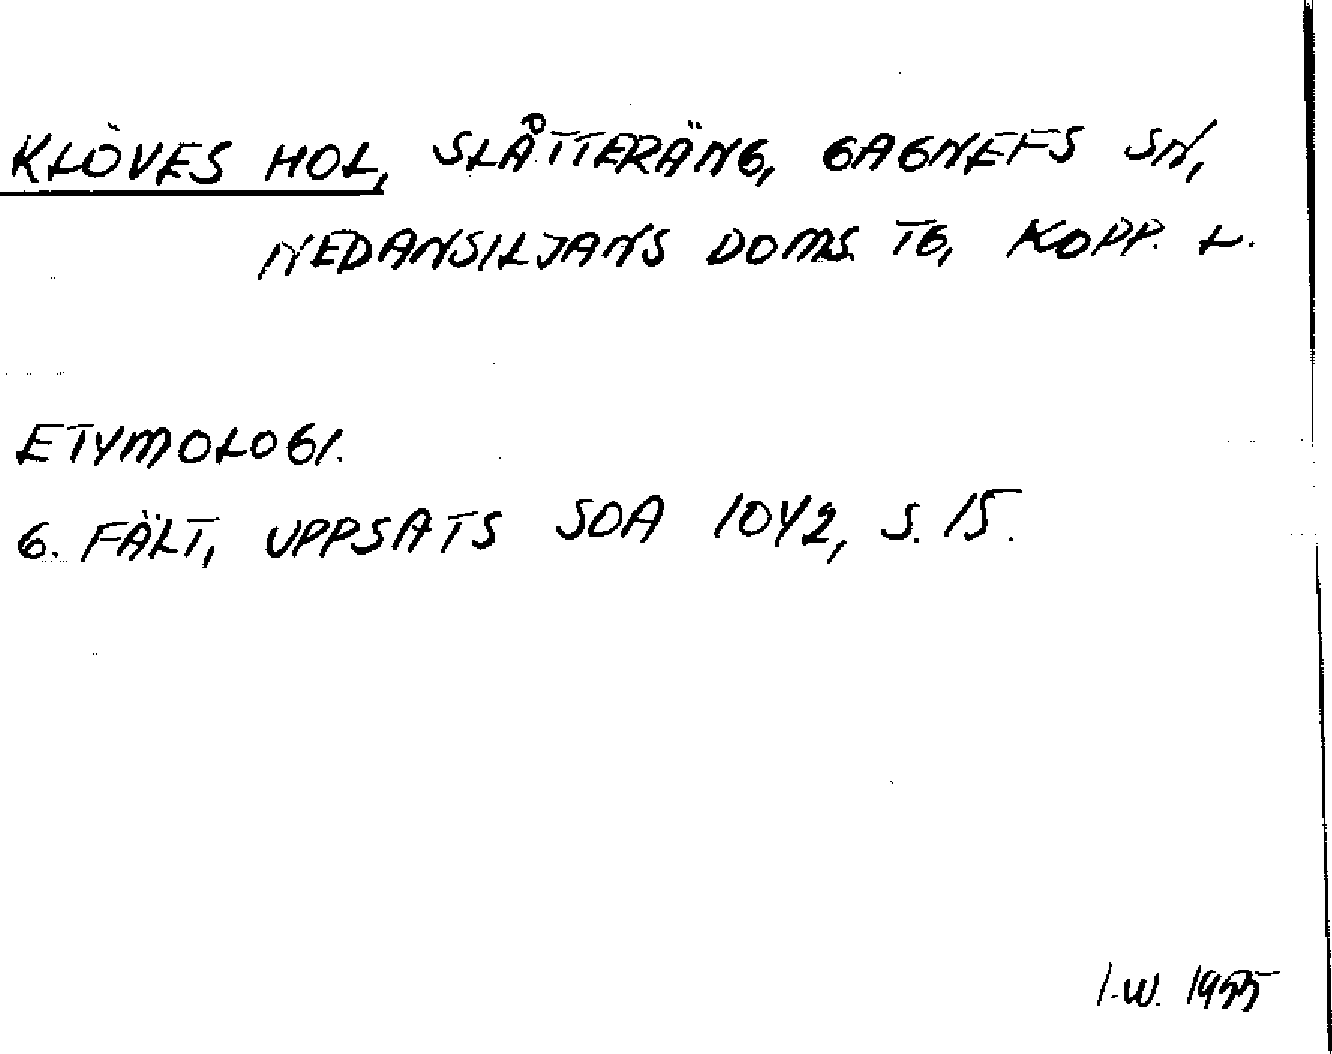 KLÖVES HOL, SLÅTTERÄNG, GAGNEFS SN,
NEDANSILJANS DOMS. TG, KOPP. L.
ETYMOLOGI.
G. FÄLT, UPPSATS SOA 1042, S. 15.
I.W. 1955